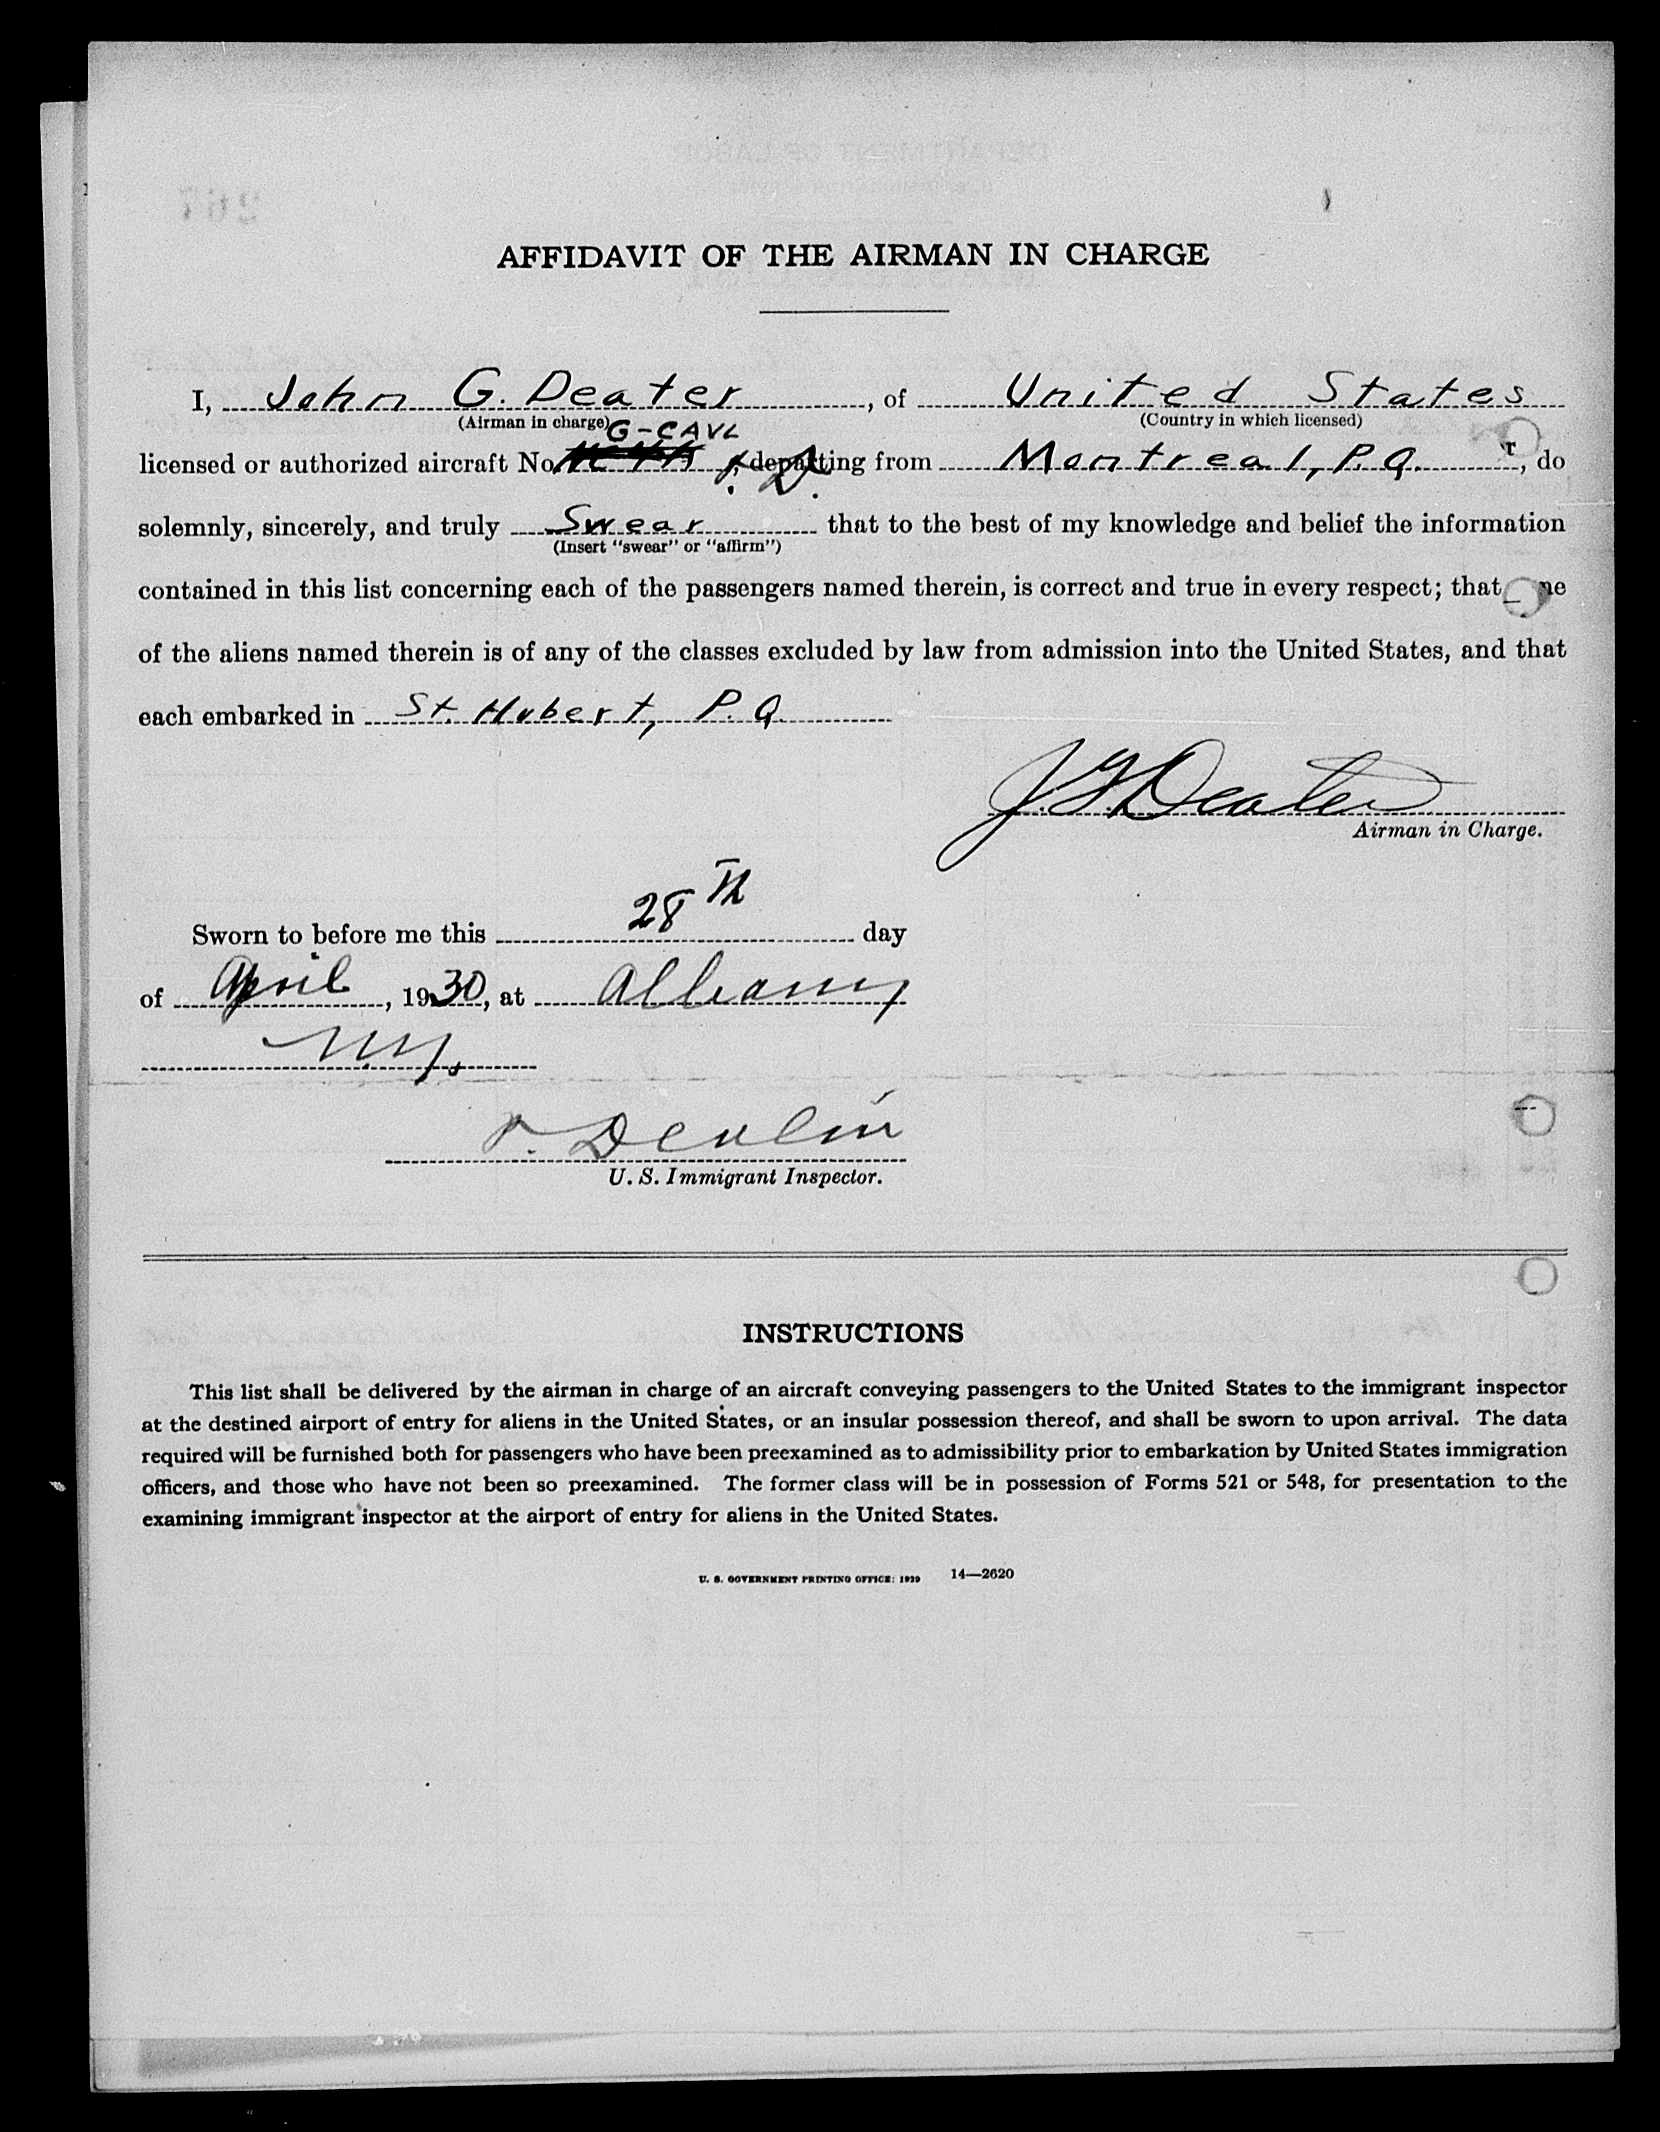 AFFIDAVIT OF THE AIRMAN IN CHARGE
I, John G. Deater, of United States
(Airman in charge) (Country in which licensed)
G-CAVL
licensed or authorized aircraft No. , departing from Montreal, P.Q. r, do
solemnly, sincerely, and truly Swear that to the best of my knowledge and belief the information
(Insert "swear" or "affirm")
contained in this list concerning each of the passengers named therein, is correct and true in every respect; that ne
of the aliens named therein is of any of the classes excluded by law from admission into the United States, and that
each embarked in St. Hubert, P.Q.
J.G. Deater
Airman in Charge.
Sworn to before me this 28th day
of April, 1930, at Albany
N.Y.
Devlin
U. S. Immigrant Inspector.
INSTRUCTIONS
This list shall be delivered by the airman in charge of an aircraft conveying passengers to the United States to the immigrant inspector
at the destined airport of entry for aliens in the United States, or an insular possession thereof, and shall be sworn to upon arrival. The data
required will be furnished both for passengers who have been preexamined as to admissibility prior to embarkation by United States immigration
officers, and those who have not been so preexamined. The former class will be in possession of Forms 521 or 548, for presentation to the
examining immigrant inspector at the airport of entry for aliens in the United States.
U. S. GOVERNMENT PRINTING OFFICE: 1929 14—2620